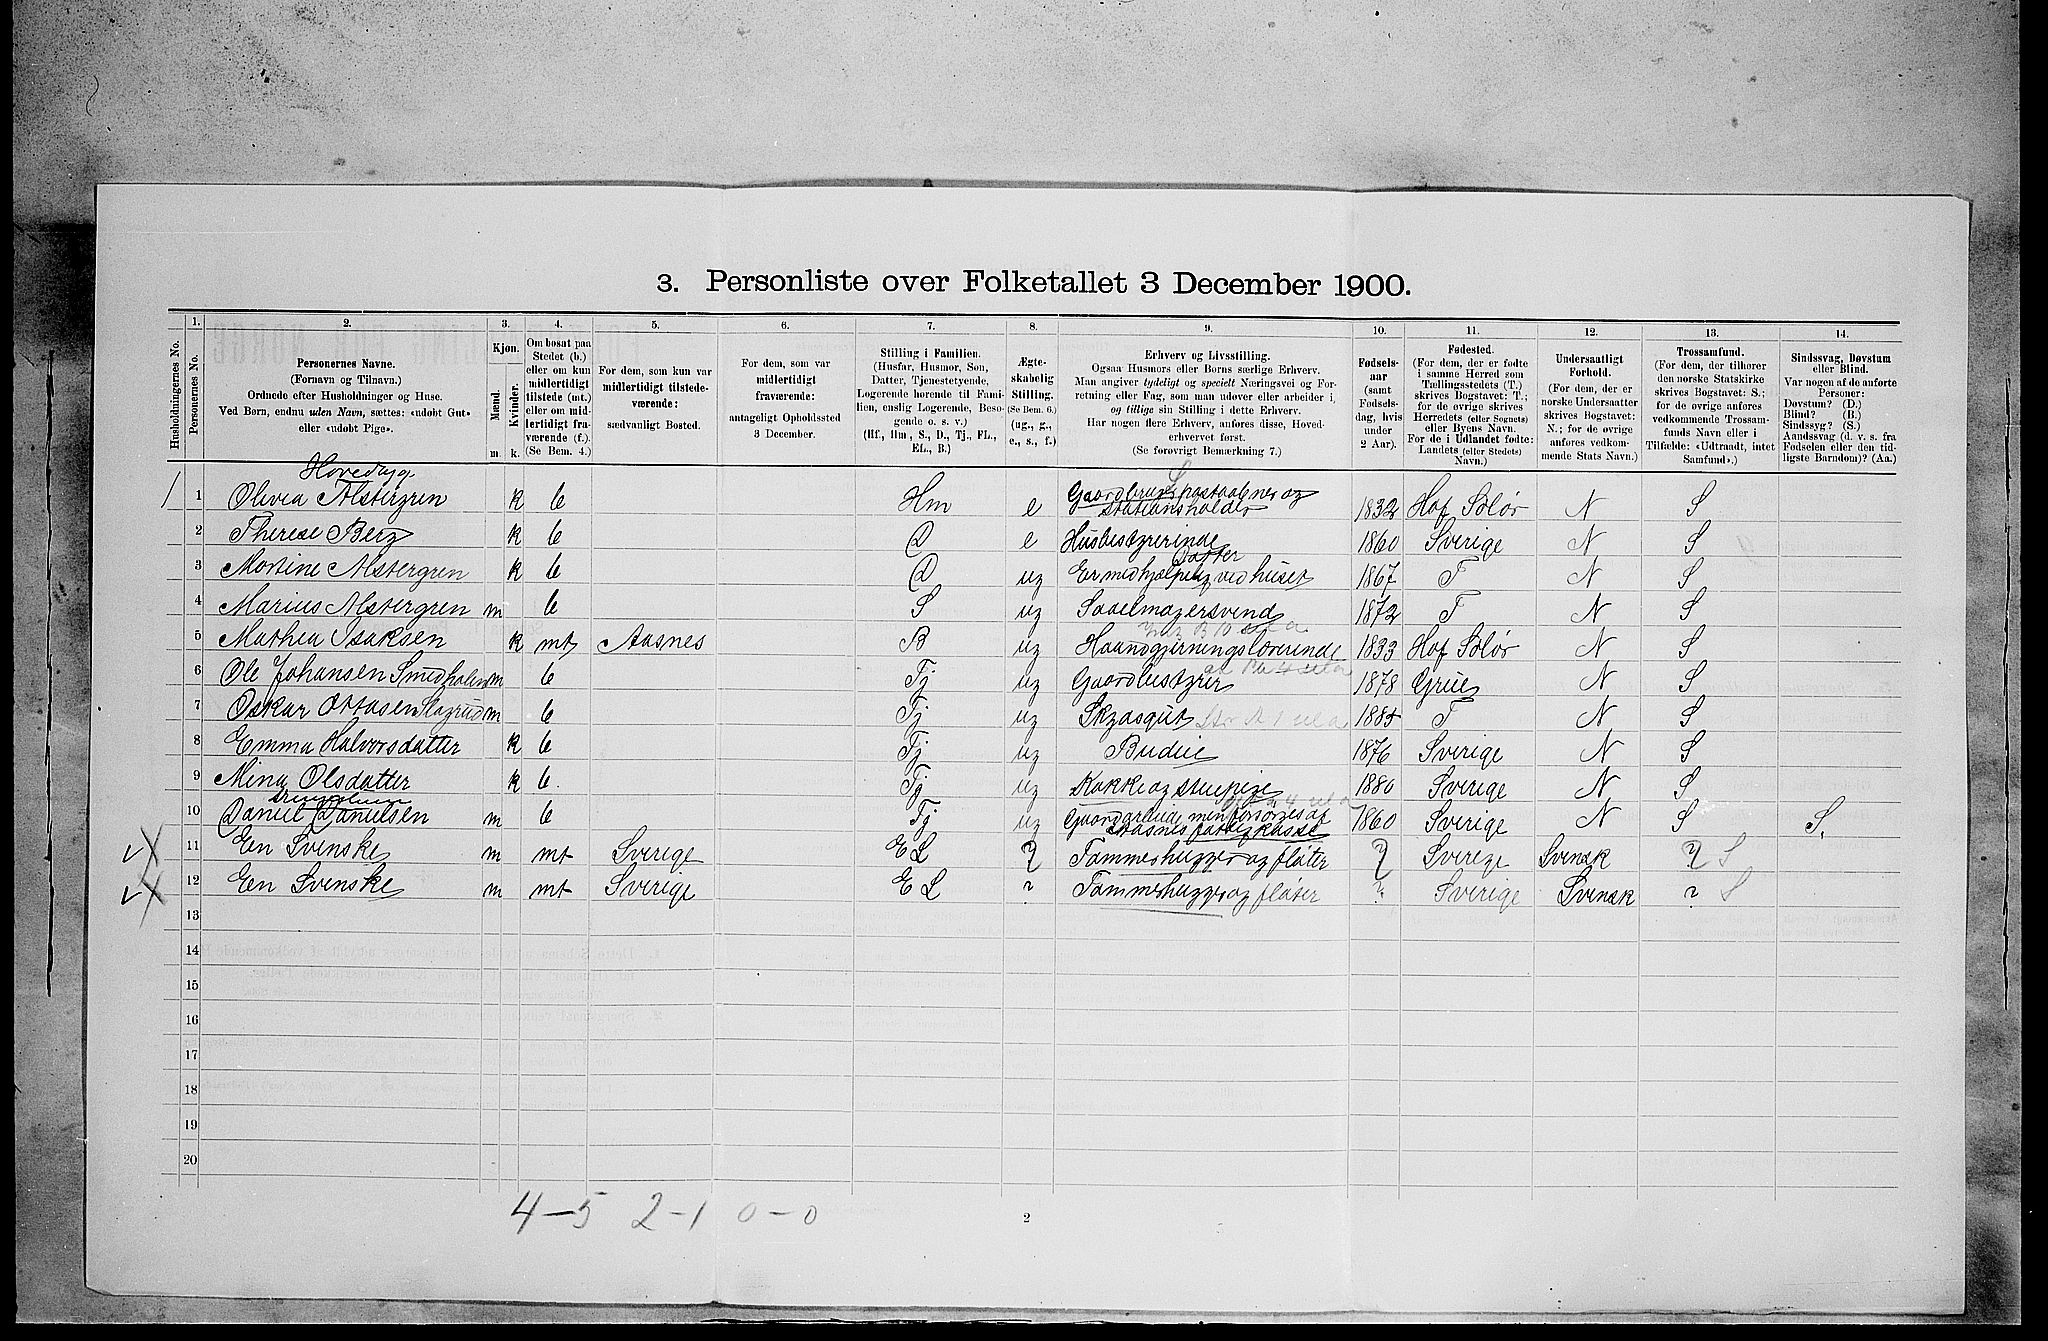 3. Personliste over Folketallet 3 December 1900.
Husholdningernes No.
1. Personernes No.
2. Personernes Navne.
(Fornavn og Tilnavn.)
Ordnede efter Husholdninger og Huse.
Ved Børn, endnu uden Navn, sættes: «udøbt Gut»
eller «udøbt Pige».
3. Kjøn.
Mænd. m.
Kvinder. k.
4. Om bosat paa
Stedet (b.)
eller om kun
midlertidigt
tilstede (mt.)
eller om mid-
lertidigt fra-
værende (f.).
(Se Bem. 4.)
5. For dem, som kun var
midlertidigt tilstede-
værende:
sædvanligt Bosted.
6. For dem, som var
midlertidigt
fraværende:
antageligt Opholdssted
3 December.
7. Stilling i Familien.
(Husfar, Husmor, Søn,
Datter, Tjenestetyende,
Logerende hørende til Fami-
lien, enslig Logerende, Besø-
gende o. s. v.)
(Hf., Hm., S., D., Tj., FL.,
EL., B.)
8. Ægte-
skabelig
Stilling.
(Se Bem. 6.)
(ug., g.,
e., s., f.)
9. Erhverv og Livsstilling.
Ogsaa Husmors eller Børns særlige Erhverv.
Man angiver tydeligt og specielt Næringsvei og For-
retning eller Fag, som man udøver eller arbeider i,
og tillige sin Stilling i dette Erhverv.
Har nogen flere Erhverv, anføres disse, Hoved-
erhvervet først.
(Se forøvrigt Bemærkning 7.)
10. Fødsels-
aar
(samt
Fødsels-
dag, hvis
under
2 Aar).
11. Fødested.
(For dem, der er fødte
i samme Herred som
Tællingsstedets (T.)
skrives Bogstavet: T.;
for de øvrige skrives
Herredets (eller Sognets)
eller Byens Navn.
For de i Udlandet fødte:
Landets (eller Stedets)
Navn.)
12. Undersaatligt
Forhold.
(For dem, der er
norske Undersaatter
skrives Bogstavet:
N.; for de øvrige
anføres vedkom-
mende Stats Navn.)
13. Trossamfund.
(For dem, der tilhører
den norske Statskirke
skrives Bogstavet: S.;
for de øvrige anføres
vedkommende Trossam-
funds Navn eller i
Tilfælde: «Udtraadt, intet
Samfund».)
14. Sindssvag, Døvstum
eller Blind.
Var nogen af de anførte
Personer:
Døvstum? (D.)
Blind? (B.)
Sindssyg? (S.)
Aandssvag (d. v. s. fra
Fødselen eller den tid-
ligste Barndom)? (Aa.)
Hovedbyg.
1 1 Olivia Alstergren k b Hm e Gaardbruger postaabner og S 1832 Hof Solør N S
stationsholder
2 Therese Berg k b D e Husbestyrerinde 1860 Sverige N S
Datter
3 Martine Alstergren k b D ug Er medhjælpelig ved huset 1867 T N S
4 Marius Alstergren m b S ug Saaelmagersvend 1872 T N S
5 Mathea Isaksen k mt Aasnes B ug Haandgjerningslærerinde 1833 Hof Solør N S
6 Ole Johansen Smedholen m b Tj ug Gaardbestyrer 1878 Grue N S
7 Oskar Ottosen Slagrud m b Tj ug Skydsgut 1885 T N S
8 Emma Halvorsdatter k b Tj ug Budeie 1876 Sverige N S
9 Mina Olsdatter k b Tj ug Kokke og stuepige 1880 Sverige N S
10 Daniel Danielsen m b Tj ug Gaardarbeide men forsørges af 1860 Sverige N S S.
Aasnes fattigkasse
11 En Svenske m mt Sverige EL ? Tømmerhugger og fløter ? Sverige Svensk ? S
12 En Svenske m mt Sverige EL ? Tømmerhugger og fløter ? Sverige Svensk ? S
13
14
15
16
17
18
19
20
4-5 2-1 0-0
2